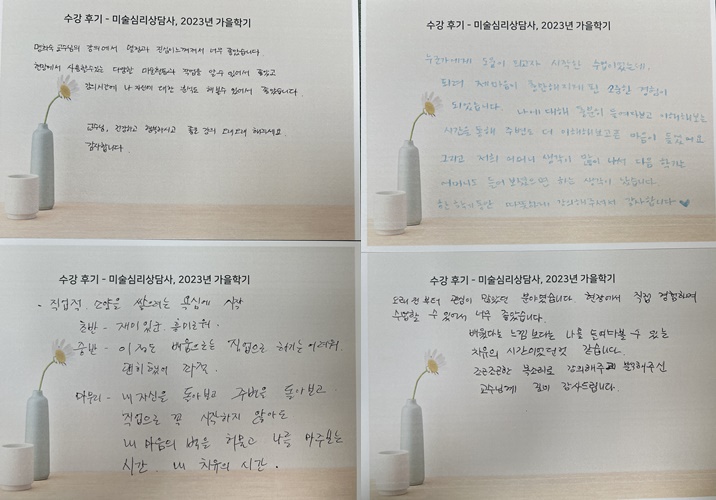 수강 후기 - 미술심리상담사, 2023년 가을학기
교수님의 강의에서 열정과 진심이 느껴져서 너무 좋았습니다.
현장에서 사용할수있는 다양한 미술활동과 작업을 알수 있어서 좋았고
강의시간에 나 자신에 대한 검사도 해볼수 있어서 좋았습니다.
교수님, 건강하고 행복하시고 좋은 강의 오래오래 해주세요.
감사합니다.
수강 후기 - 미술심리상담사, 2023년 가을학기
누군가에게 도움이 되고자 시작한 수업이었는데,
되려 제마음이 충만해지게 된 소중한 경험이
되었습니다. 나에 대해 충분히 들여다보고 이해해보는
시간을 통해 주변도 더 이해해보고픈 마음이 들었네요
그리고 저희 어머니 생각이 많이 나서 다음 학기는
어머니도 들어보셨으면 하는 생각이 있습니다.
한 학기동안 따뜻하게 강의해주셔서 감사합니다
수강 후기 - 미술심리상담사, 2023년 가을학기
- 직업적 소양을 쌓으려는 욕심에 시작
초반 - 재미있군. 흥미로워.
중반 - 이 정도 배움으로는 직업으로 하기는 어려워.
괜히했어 과정.
마무리 - 내 자신을 돌아보고 주변을 돌아보고
직업으로 꼭 시작하지 않아도
내 마음의 벽을 허물고 나를 마주보는
시간. 내 치유의 시간.
수강 후기 - 미술심리상담사, 2023년 가을학기
오래전부터 관심이 많았던 분야였습니다. 현장에서 직접 경험하며
수업할 수 있어서 너무 좋았습니다.
배웠다는 느낌 보다는 나를 들여다볼 수 있는
치유의 시간이었던것 같습니다.
조근조근한 목소리로 강의해주고 분석해주신
교수님께 깊이 감사드립니다.